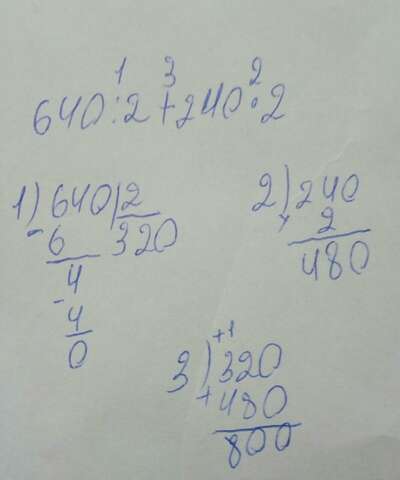 1 3 2
640:2+240·2
1) 640 2
- 6 320
4
- 4
0
2) 240
× 2
480
+1
3) 320
+ 480
800